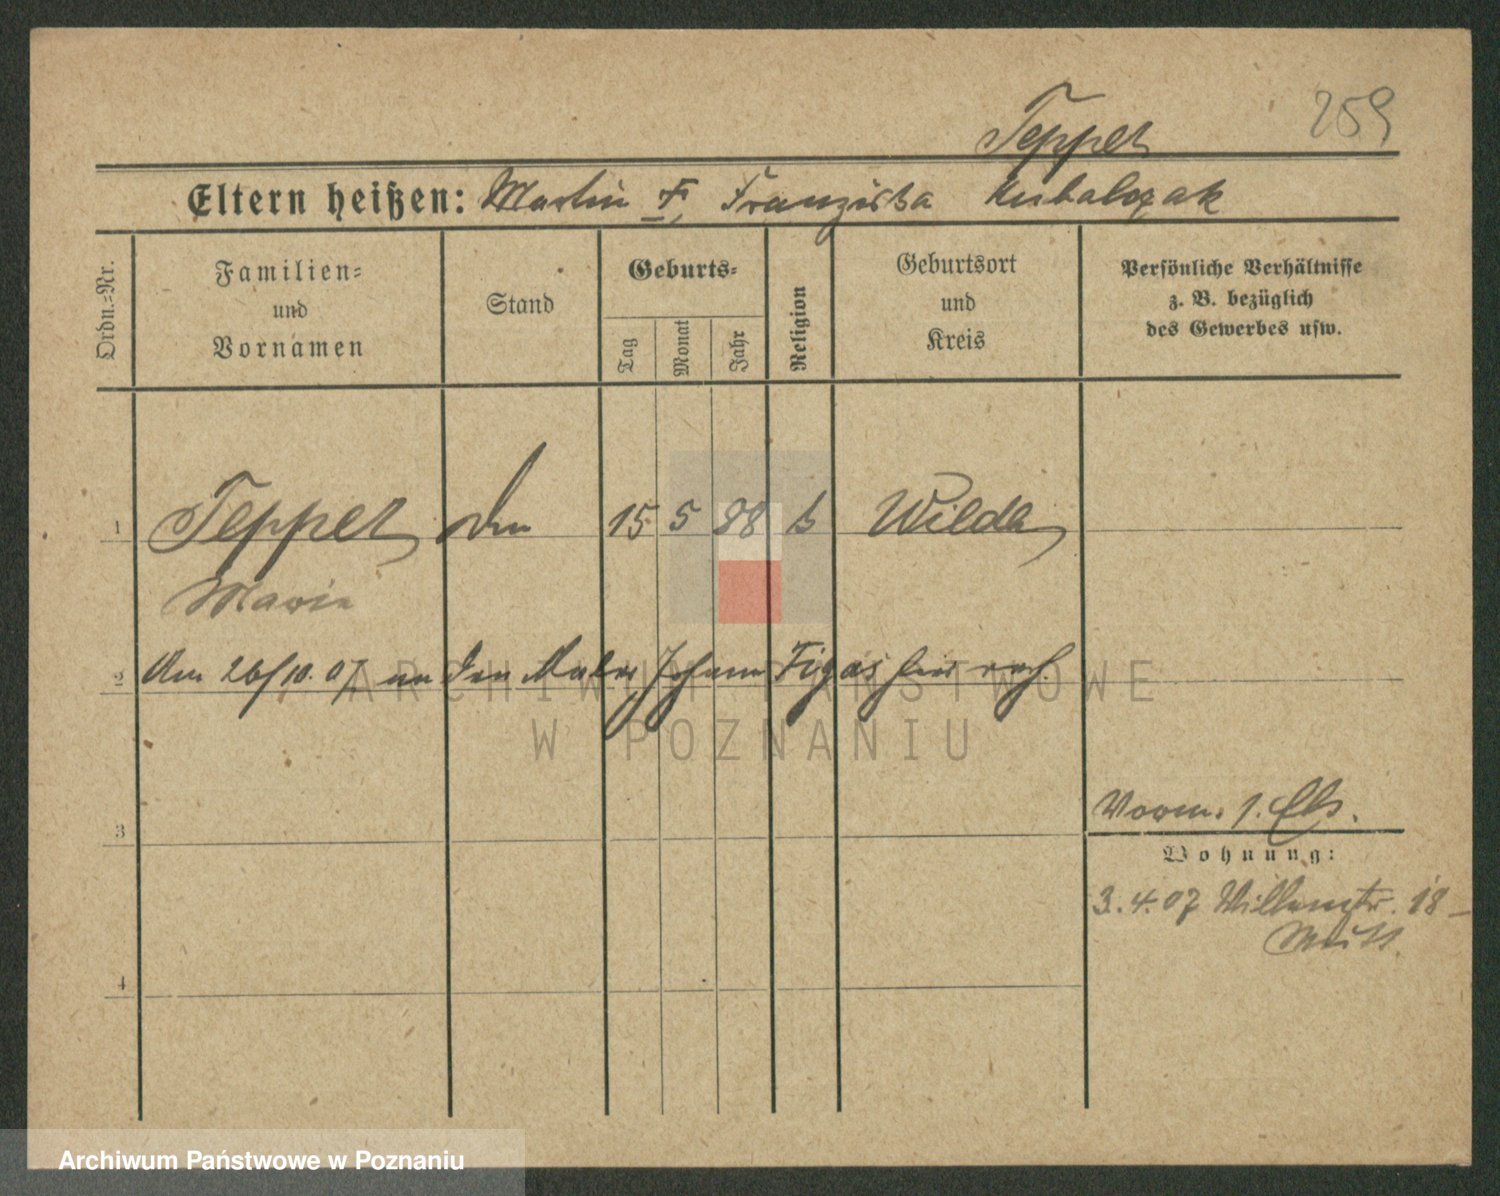 Teppet 259
Eltern heißen: Martin T, Franziska Kubalczak
Ordn.=Nr.
Familien=
und
Vornamen
Stand
Geburts=
Tag
Monat
Jahr
Religion
Geburtsort
und
Kreis
Persönliche Verhältnisse
z. B. bezüglich
des Gewerbes usw.
1 Teppet 15 5 88 k Wilda
Marie
2 Am 26/10.07 an den Maler Johann Figas hier verh.
ARCHIWUM PAŃSTWOWE
W POZNANIU
3
Vorm. 1.
Wohnung:
3.4.07 18
4
Archiwum Państwowe w Poznaniu